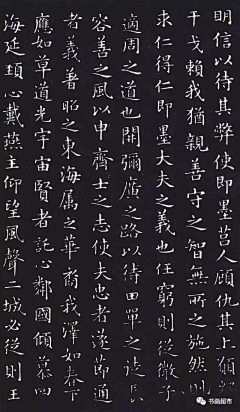 明信以待其弊使即墨莒人顧仇其上願
干戈賴我猶親善守之智無所之施然則
求仁得仁即墨大夫之義也任窮則從微子
適周之道也開彌廣之路以待田單之徒長
容善之風以申齊士之志使夫忠者遂節通
者義著昭之東海屬之華裔我澤如春下
應如草道光宇宙賢者託心鄰國傾慕四
海延頸心戴燕主仰望風聲二城必從則王
书画超市